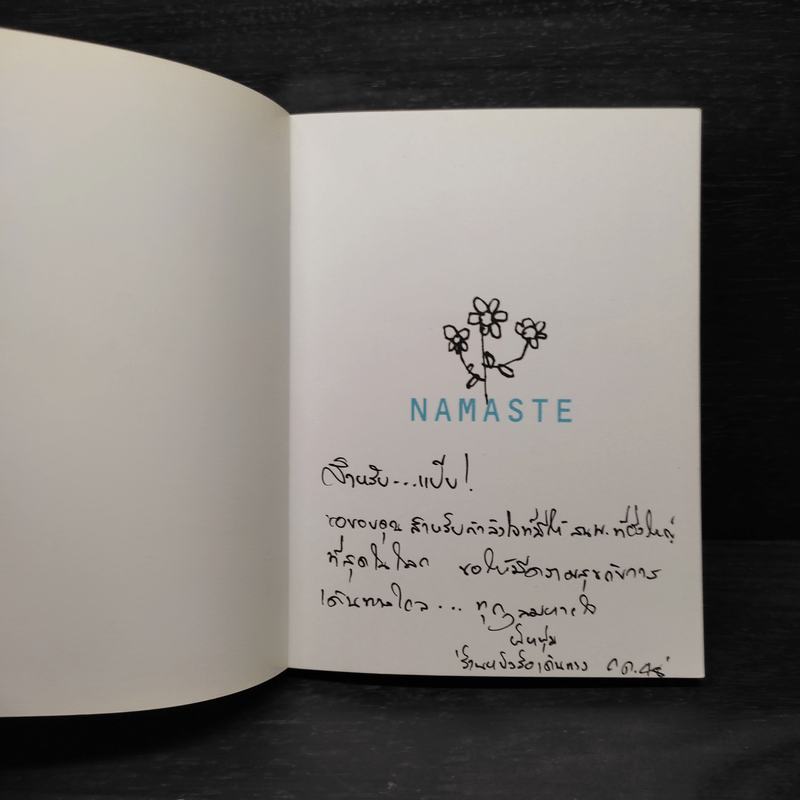 NAMASTE
สำหรับ...แป๊บ!
ขอขอบคุณ สำหรับกำลังใจที่มีให้ สนพ. ที่ยิ่งใหญ่
ที่สุดในโลก ขอให้มีความสุขกับการ
เดินทางไกล... ทุกๆ ลมหายใจ
'ร้านหนังสือเดินทาง